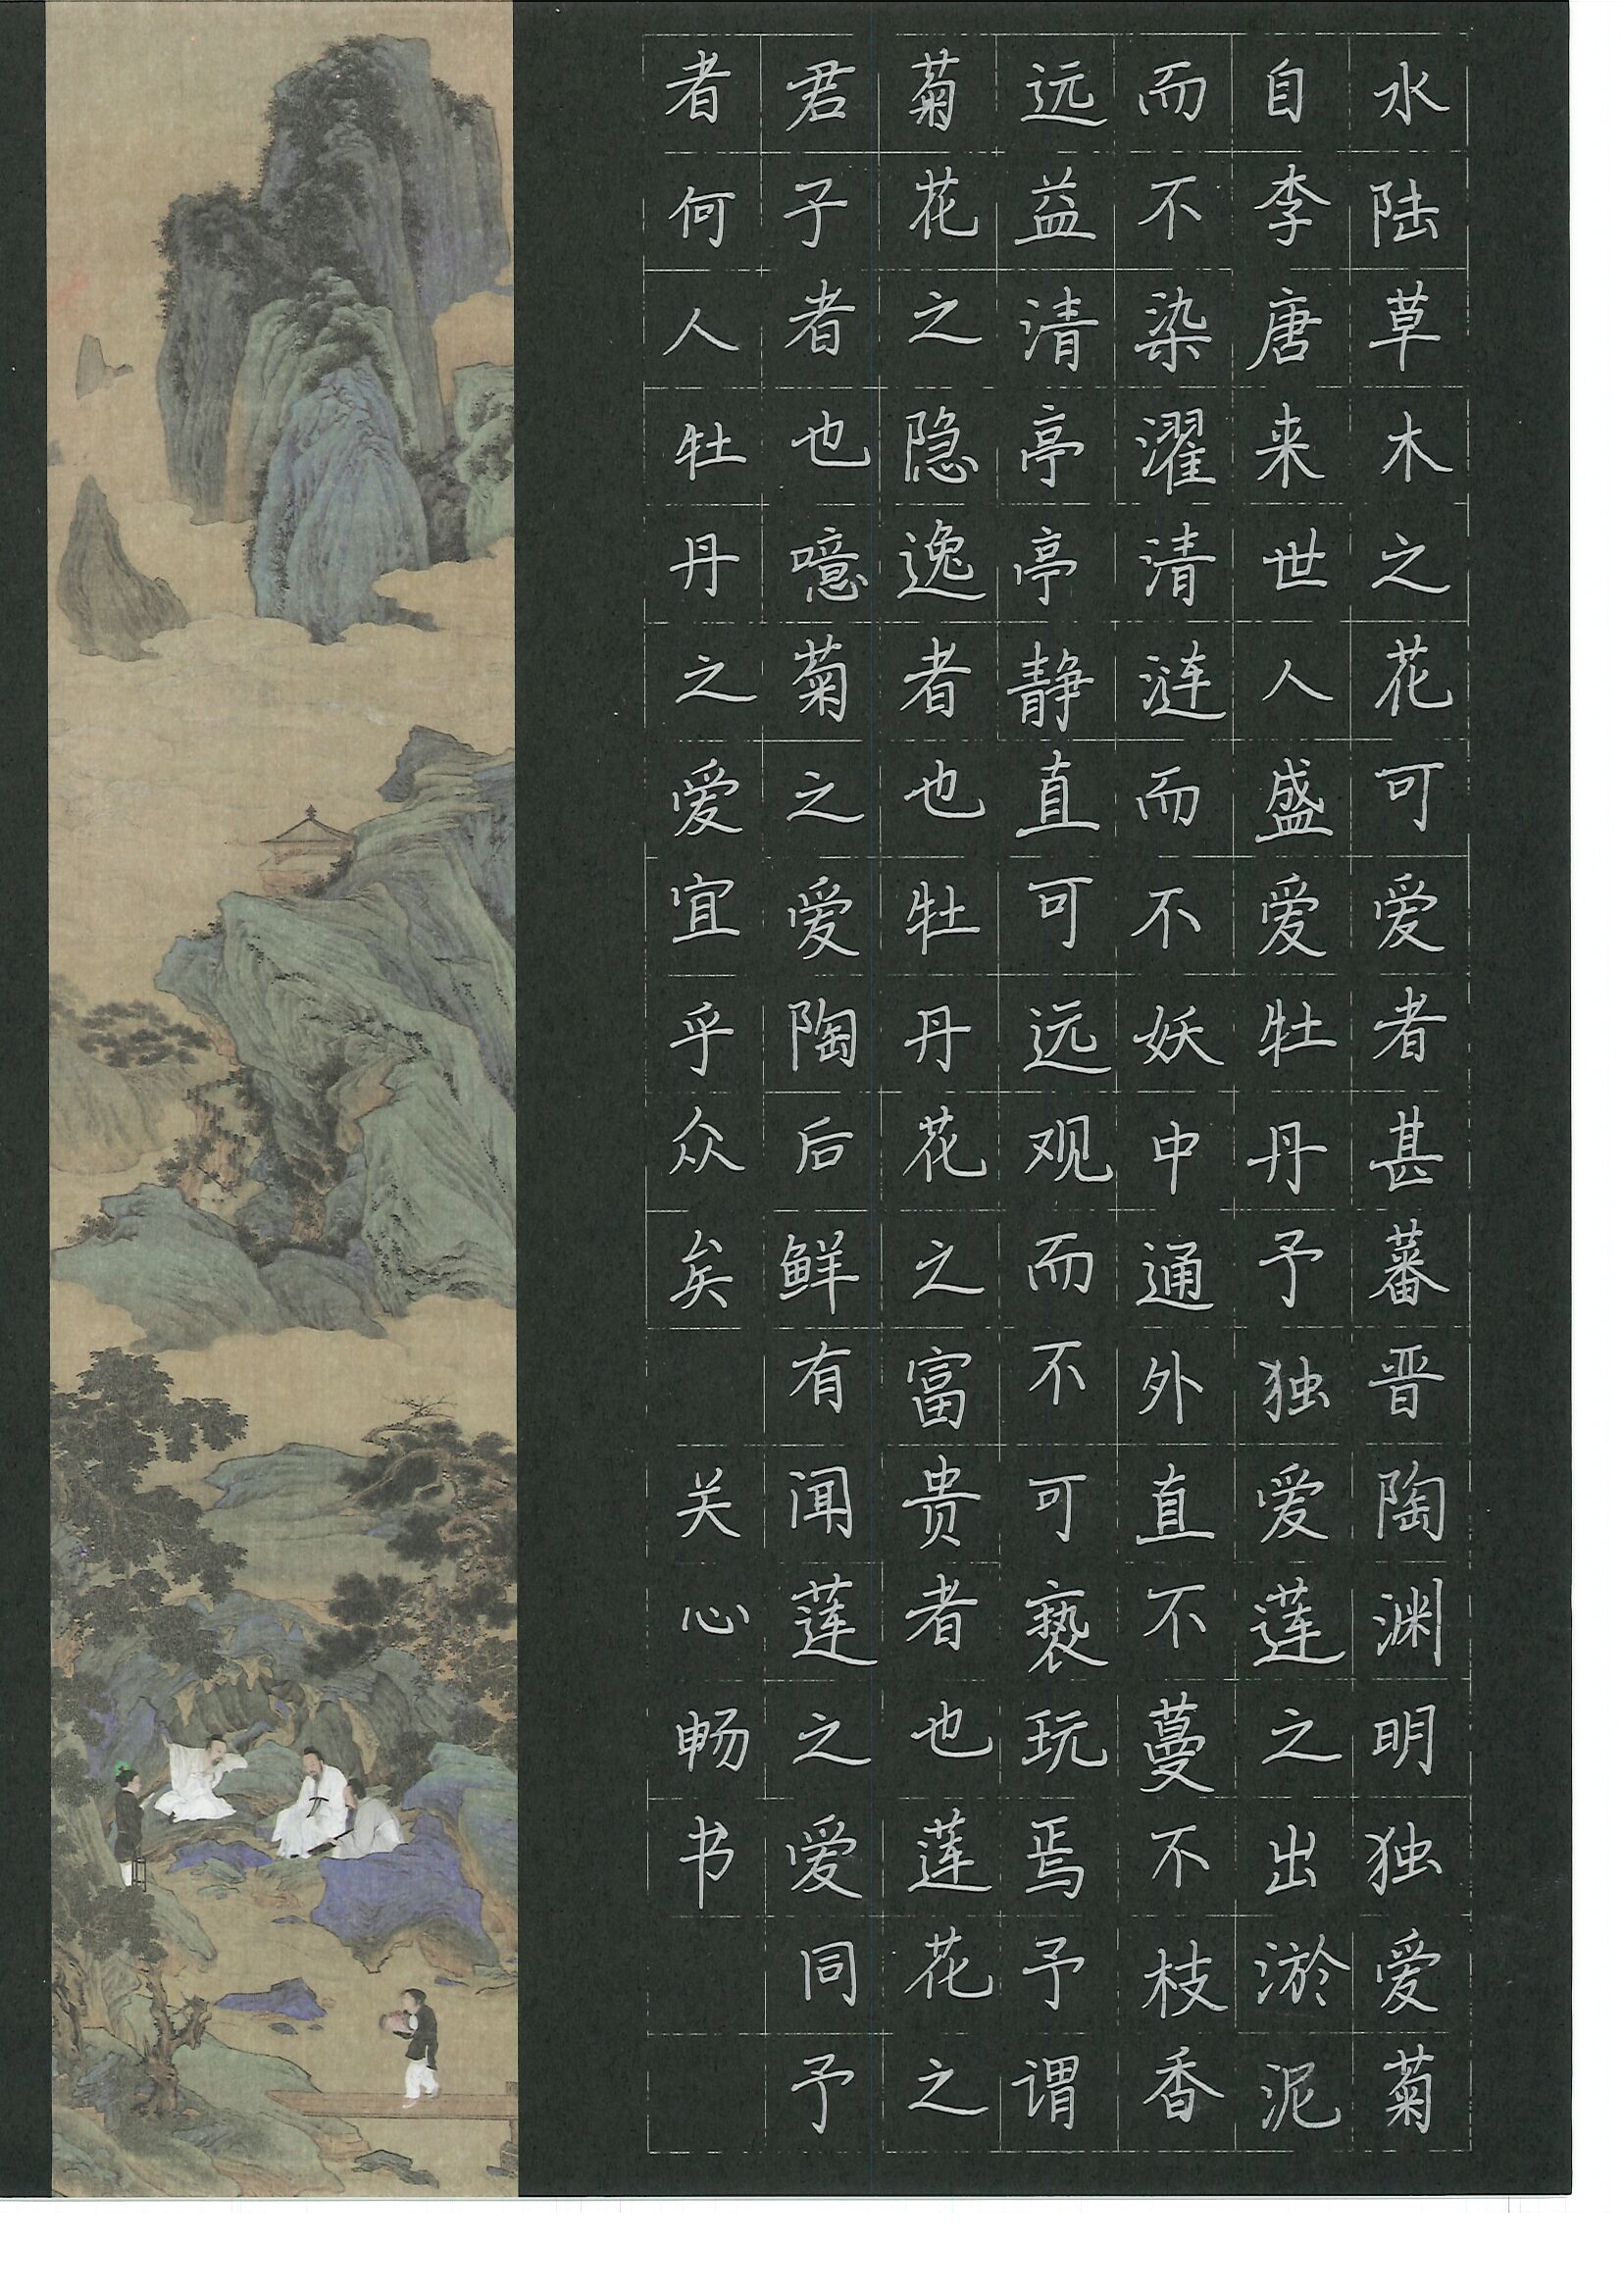 水陆草木之花可爱者甚蕃晋陶渊明独爱菊
自李唐来世人盛爱牡丹予独爱莲之出淤泥
而不染濯清涟而不妖中通外直不蔓不枝香
远益清亭亭静直可远观而不可亵玩焉予谓
菊花之隐逸者也牡丹花之富贵者也莲花之
君子者也噫菊之爱陶后鲜有闻莲之爱同予
者何人牡丹之爱宜乎众矣 关心畅书